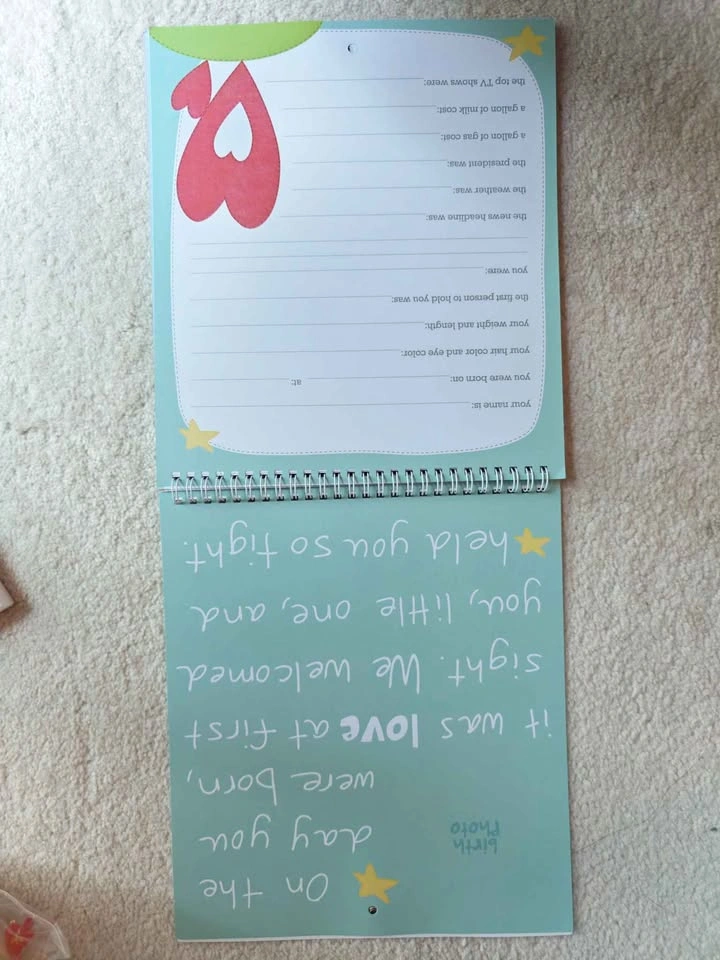 On the
day you
were born,
it was love at first
sight. We welcomed
you, little one, and
held you so tight.
birth
photo
your name is:
you were born on: at:
your hair color and eye color:
your weight and length:
the first person to hold you was:
you were:
the news headline was:
the weather was:
the president was:
a gallon of gas cost:
a gallon of milk cost:
the top TV shows were: